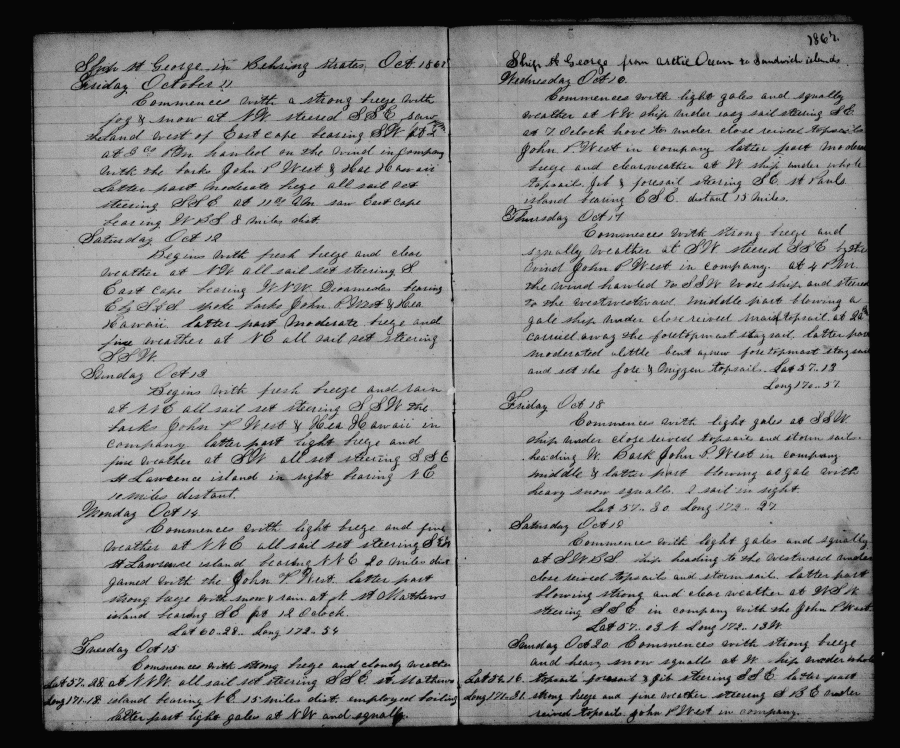 Ship St George in Behring Strates, Oct 1867
Friday October 11
Commences with a strong breze with
fog & snow at NW steered S S E saw
island west of East cape bearing SW
at 3 00 PM hauled on the wind in company
with the barks John P West & Hae Hawaii
latter part moderate breze all sail set
steering S S E at 11 AM saw East Cape
bearing W B S 8 miles dist.
Saturday Oct 12
Begins with fresh breeze and clear
weather at NW all sail set steering S
East cape bearing W N W Diomedes bearing
E by S & S spoke barks John P West & Hea
Hawaii latter part moderate breze and
fine weather at NE all sail set steering
S S W.
Sunday Oct 13
Begins with fresh breeze and rain
at N E all sail set steering S S W the
barks John P West & Hea Hawaii in
company latter part light breze and
fine weather at SW all set steering S S E
St Lawrence island in sight bearing N E
10 miles distant.
Monday Oct 14
Commences with light breze and fine
weather at N N E all sail set steering
St Lawrence island bearing N N E 20 miles dist
gamed with the John P West. latter part
strong breze with snow & rain at N St Mathews
island bearing S E at 12 Oclock.
Lat 60..28.. Long 172..54
Tuesday Oct 15
Commences with strong breze and cloudy weather
Lat 57..28 at N W. all sail set steering S S E St Mathews
Long 171..18 island bearing N E 15 miles dist employed boiling
latter part light gales at N W and squally.
1867.
Ship St George from Arctic Ocean to Sandwich islands
Wednesday Oct 16.
Commences with light gales and squally
weather at N W ship under easy sail steering S E.
at 7 Oclock hove to under close reived topsails
John P. West in company latter part moderate
breze and clear weather at W ship under whole
topsails Jib & foresail steering S E. St Pauls
island bearing E S E. distant 15 miles.
Thursday Oct 17
Commences with strong breeze and
squally weather at S W steered S S E by the
wind John P West in company. at 4 P.M.
the wind hauled to S S W wore ship and steered
to the westwestward middle part blowing a
gale ship under close reived main topsail at
carried away the foretopmast stay sail. latter part
moderated a little bent a new fore topmast stay sail
and set the fore & mizzen topsail. Lat 57..13
Long 170..37
Friday Oct 18
Commences with light gales at S S W
ship under close reived topsails and storm sails
heading W. Bark John P. West in company
middle & latter part blowing a gale with
heavy snow squalls. 1 sail in sight.
Lat 57..30 Long 172..27
Saturday Oct 19
Commences with light gales and squally
at S W B S ship heading to the westward under
close reived topsails and storm sail. latter part
blowing strong and clear weather at W S W
steering S S E in company with the John P West
Lat 57..03 N Long 172..13 W.
Sunday Oct 20. Commences with strong breze
and heavy snow squalls at W. ship under whole
Lat 56..16. topsails foresail & jib steering S S E latter part
Long 171..21. strong breze and fine weather steering S B E under
reived topsails. John P West in company.